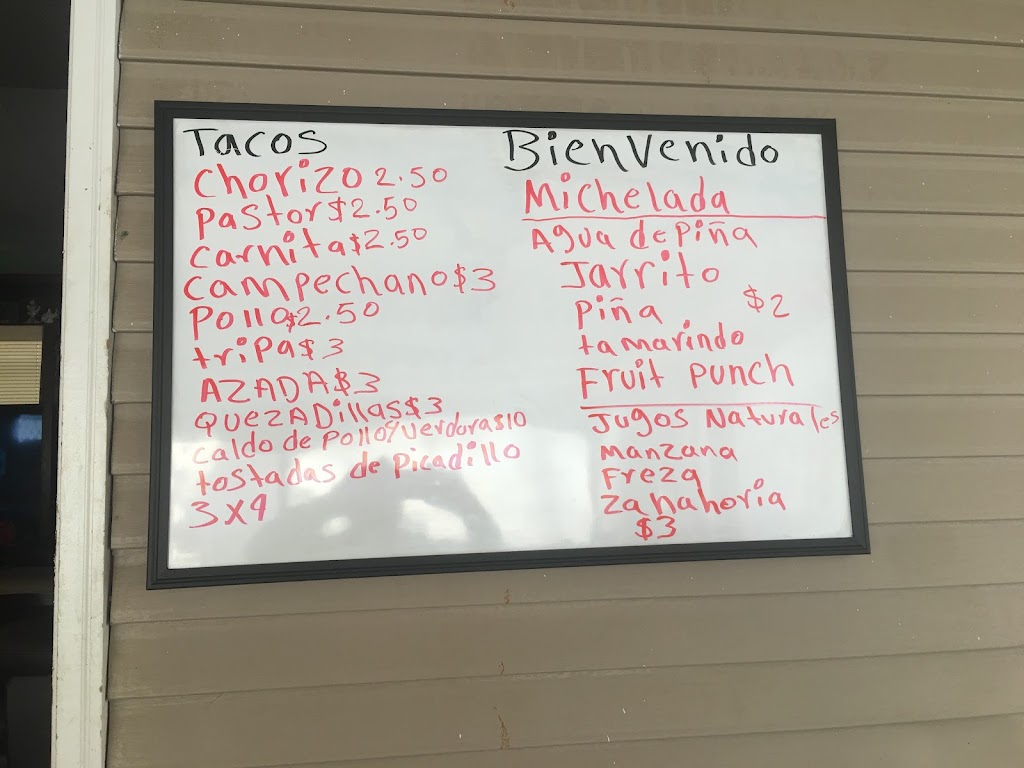 Tacos
Chorizo 2.50
Pastor $2.50
Carnita $2.50
Campechano $3
Pollo $2.50
tripa $3
AZADA $3
QuezADillas $3
Caldo de Pollo y Verduras 10
tostadas de Picadillo
3x9
BienVenido
Michelada
Agua de Piña
Jarrito
Piña $2
tamarindo
Fruit Punch
Jugos Naturales
Manzana
Freza
Zanahoria
$3